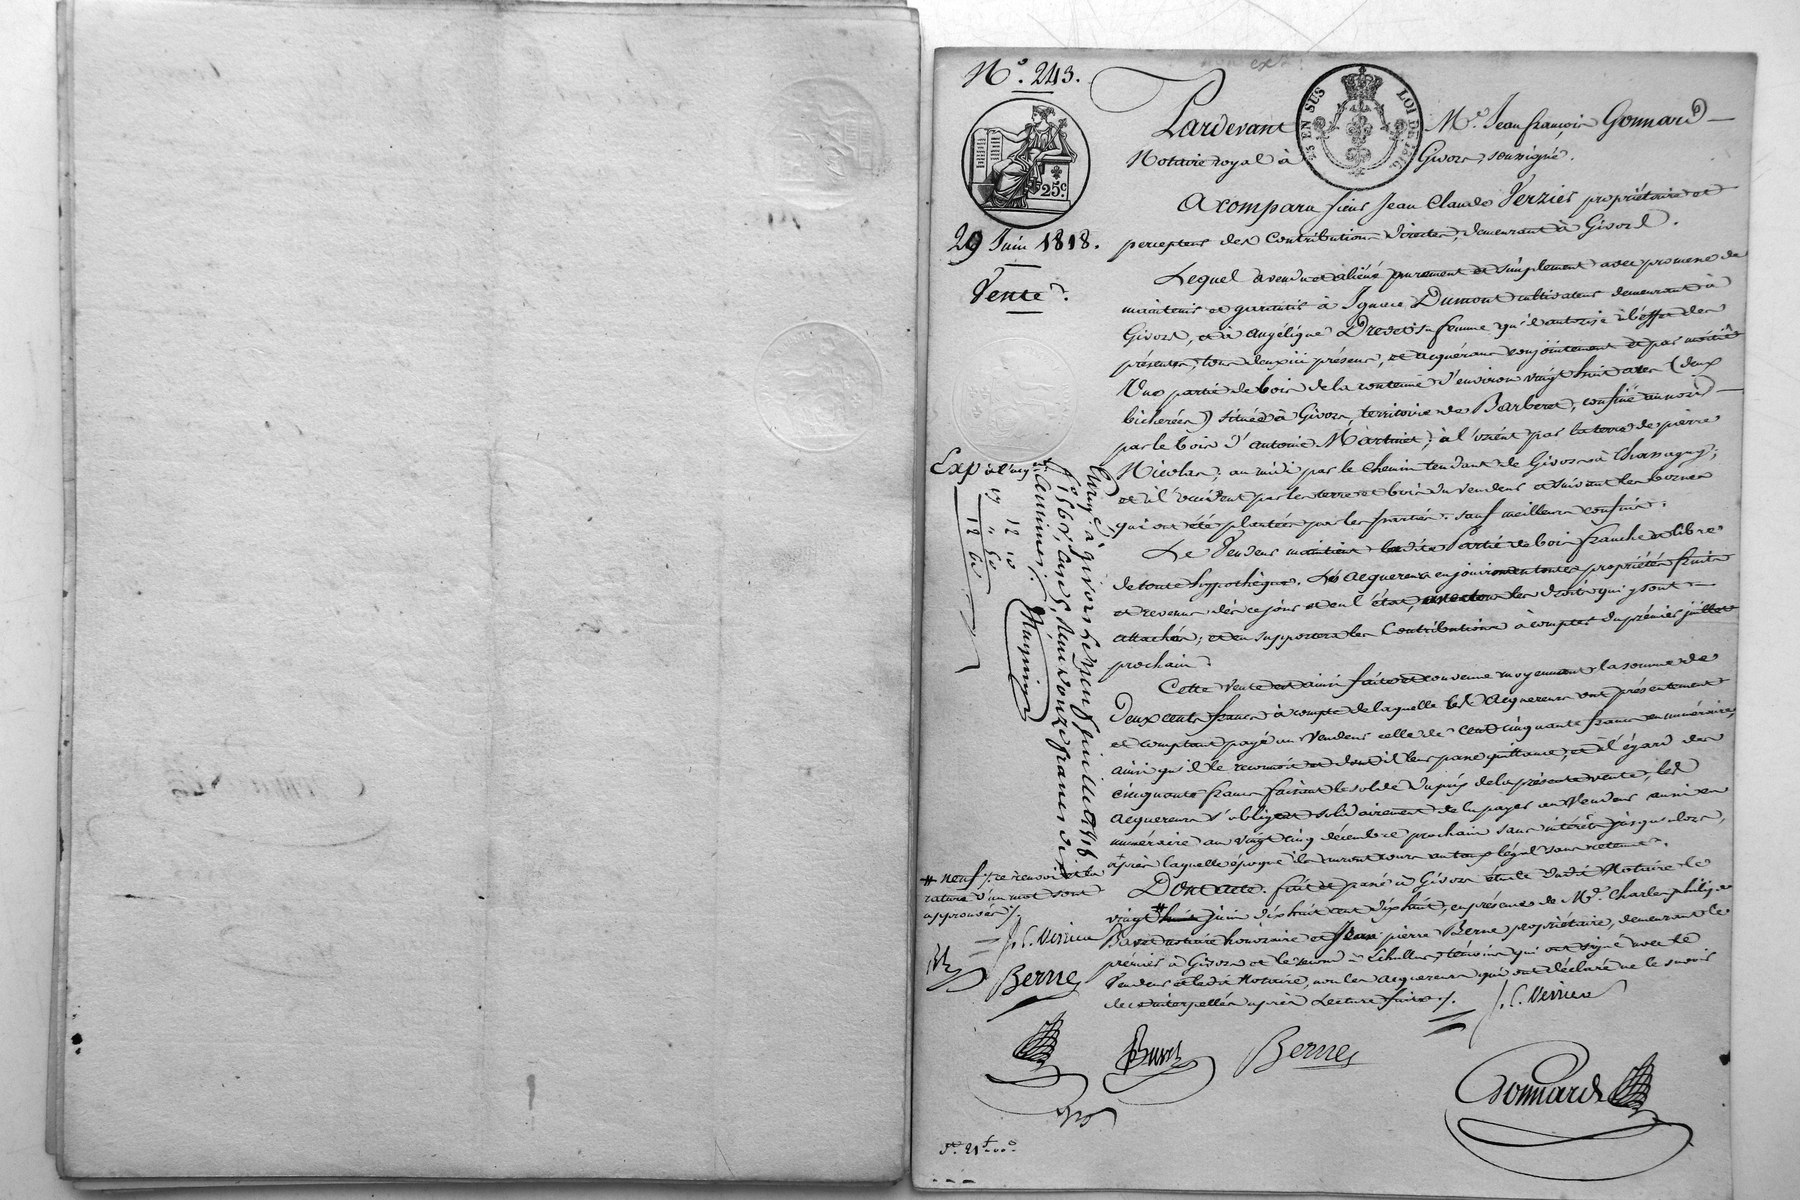 N.° 243.
Pardevant M.e Jean françois Gonnard
Notaire royal à Givors soussigné.
25 EN SUS LOI DE 1816
25c
29 Juin 1818.
Vente.
A comparu sieur Jean Claude Verzier propriétaire et
percepteur des Contributions directes, demeurant à Givors.
Lequel a vendu et aliéné purement et simplement avec promesse de
maintenir et garantir à Ignace Dumont cultivateur demeurant à
Givors, et à Angélique Drevet sa femme qu'il autorise à l'effet des
présentes, tous deux ici présens, et acquérans conjointement et par moitié
Une partie de bois de la contenue d'environ vingt huit ares (deux
bicherées) située à Givors, territoire de Barberet, confiné au nord
par le bois d'antoine Martinet; à l'orient par la terre de pierre
Nicolas; au midi par le chemin tendant de Givors à Chassagny;
et à l'occident par les terre et bois du vendeur et suivant les bornes
qui ont été plantées par les parties. sauf meilleurs confins.
Le Vendeur maintient ladite Partie de bois franche et libre
de toute hypothèque. Les acquéreurs en jouiront en toutes propriétés fruits
et revenus dès ce jour et en l'état, avec tous les droits qui y sont
attachés; et en supportera les Contributions à compter du premier juillet
prochain.
Cette vente est ainsi faite et convenue moyennant la somme de
Deux cents francs à compte de laquelle les acquereurs ont présentement
et comptant payé au Vendeur celle de Cent cinquante francs en numéraire,
ainsi qu'il le reconnoit et dont il leur passe quittance; et à l'égard des
cinquante francs faisant le solde du prix de la présente vente, les
acquereurs s'obligent solidairement de les payer au Vendeur aussi en
numéraire au vingt cinq décembre prochain sans intérêts jusqu'alors,
après laquelle époque ils auront cours au taux légal sans retenue.
Dont acte. fait et passé à Givors étude dudit Notaire le
vingt # huit juin dix huit cent dix huit, en présence de M.e Charles philipe
notaire honoraire et Jean pierre Berne propriétaire, demeurant le
premier à Givors et le second à Echallas, témoins qui ont signé avec le
Vendeur et ledit Notaire, non les acquereurs qui ont déclaré ne le savoir
de ce interpellés après Lecture faite ./.
J. C. Verzier
Exp
12 10
" 50
12 60
Enreg.é à Givors le juillet 1818
f.° 156 v.°, cases , reçu onze francs dix
centimes.
# neuf ./. ce renvoi et la
rature d'un mot sont
approuvés ./.
J. C. Verzier
Berne
Berne
Gonnard